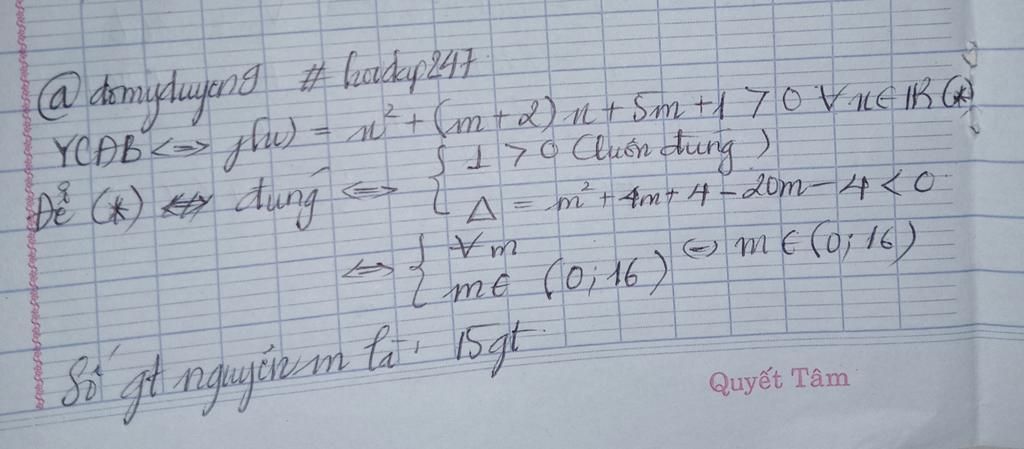 @domyduyeng # hoidap247
YCĐB <=> f(x) = x² + (m+2)x + 5m+1 > 0 ∀x∈ℝ (*)
Để (*) đúng <=> { 1 > 0 (luôn đúng)
Δ = m² + 4m + 4 - 20m - 4 < 0
<=> { ∀m
m∈ (0; 16) <=> m∈(0; 16)
Số gt nguyên m là: 15gt
Quyết Tâm